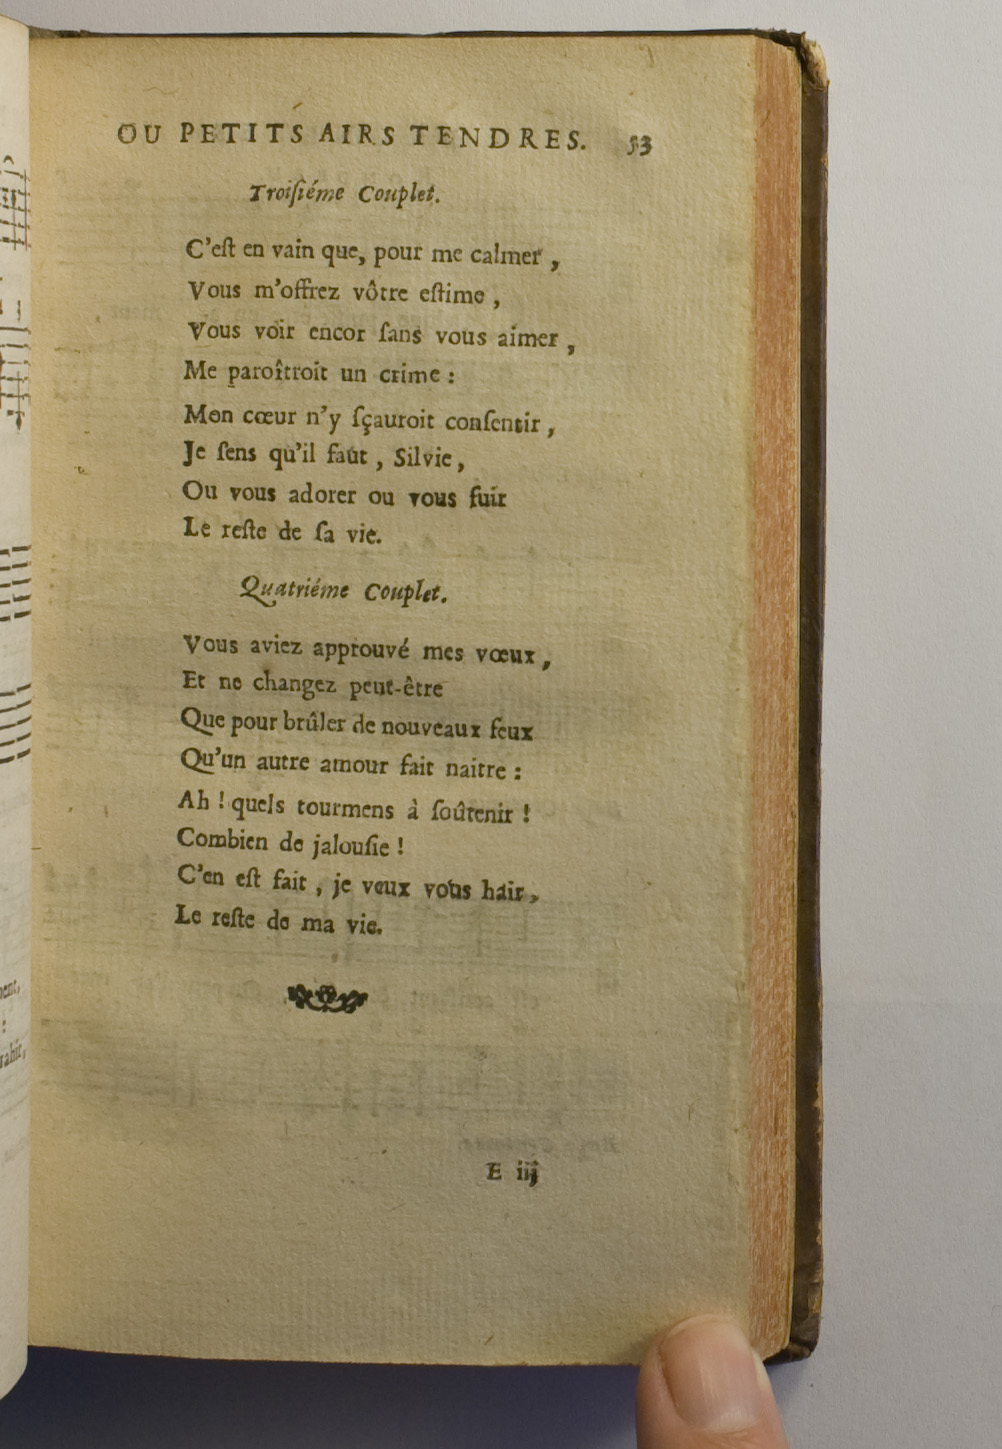 OU PETITS AIRS TENDRES. 53
Troiſiéme Couplet.
C'eſt en vain que, pour me calmer,
Vous m'offrez vôtre eſtime,
Vous voir encor ſans vous aimer,
Me paroîtroit un crime :
Mon cœur n'y ſçauroit conſentir,
Je ſens qu'il faut, Silvie,
Ou vous adorer ou vous fuir
Le reſte de ſa vie.
Quatriéme Couplet.
Vous aviez approuvé mes vœux,
Et ne changez peut-être
Que pour brûler de nouveaux feux
Qu'un autre amour fait naitre :
Ah ! quels tourmens à ſoûtenir !
Combien de jalouſie !
C'en eſt fait, je veux vous haïr,
Le reſte de ma vie.
E iij